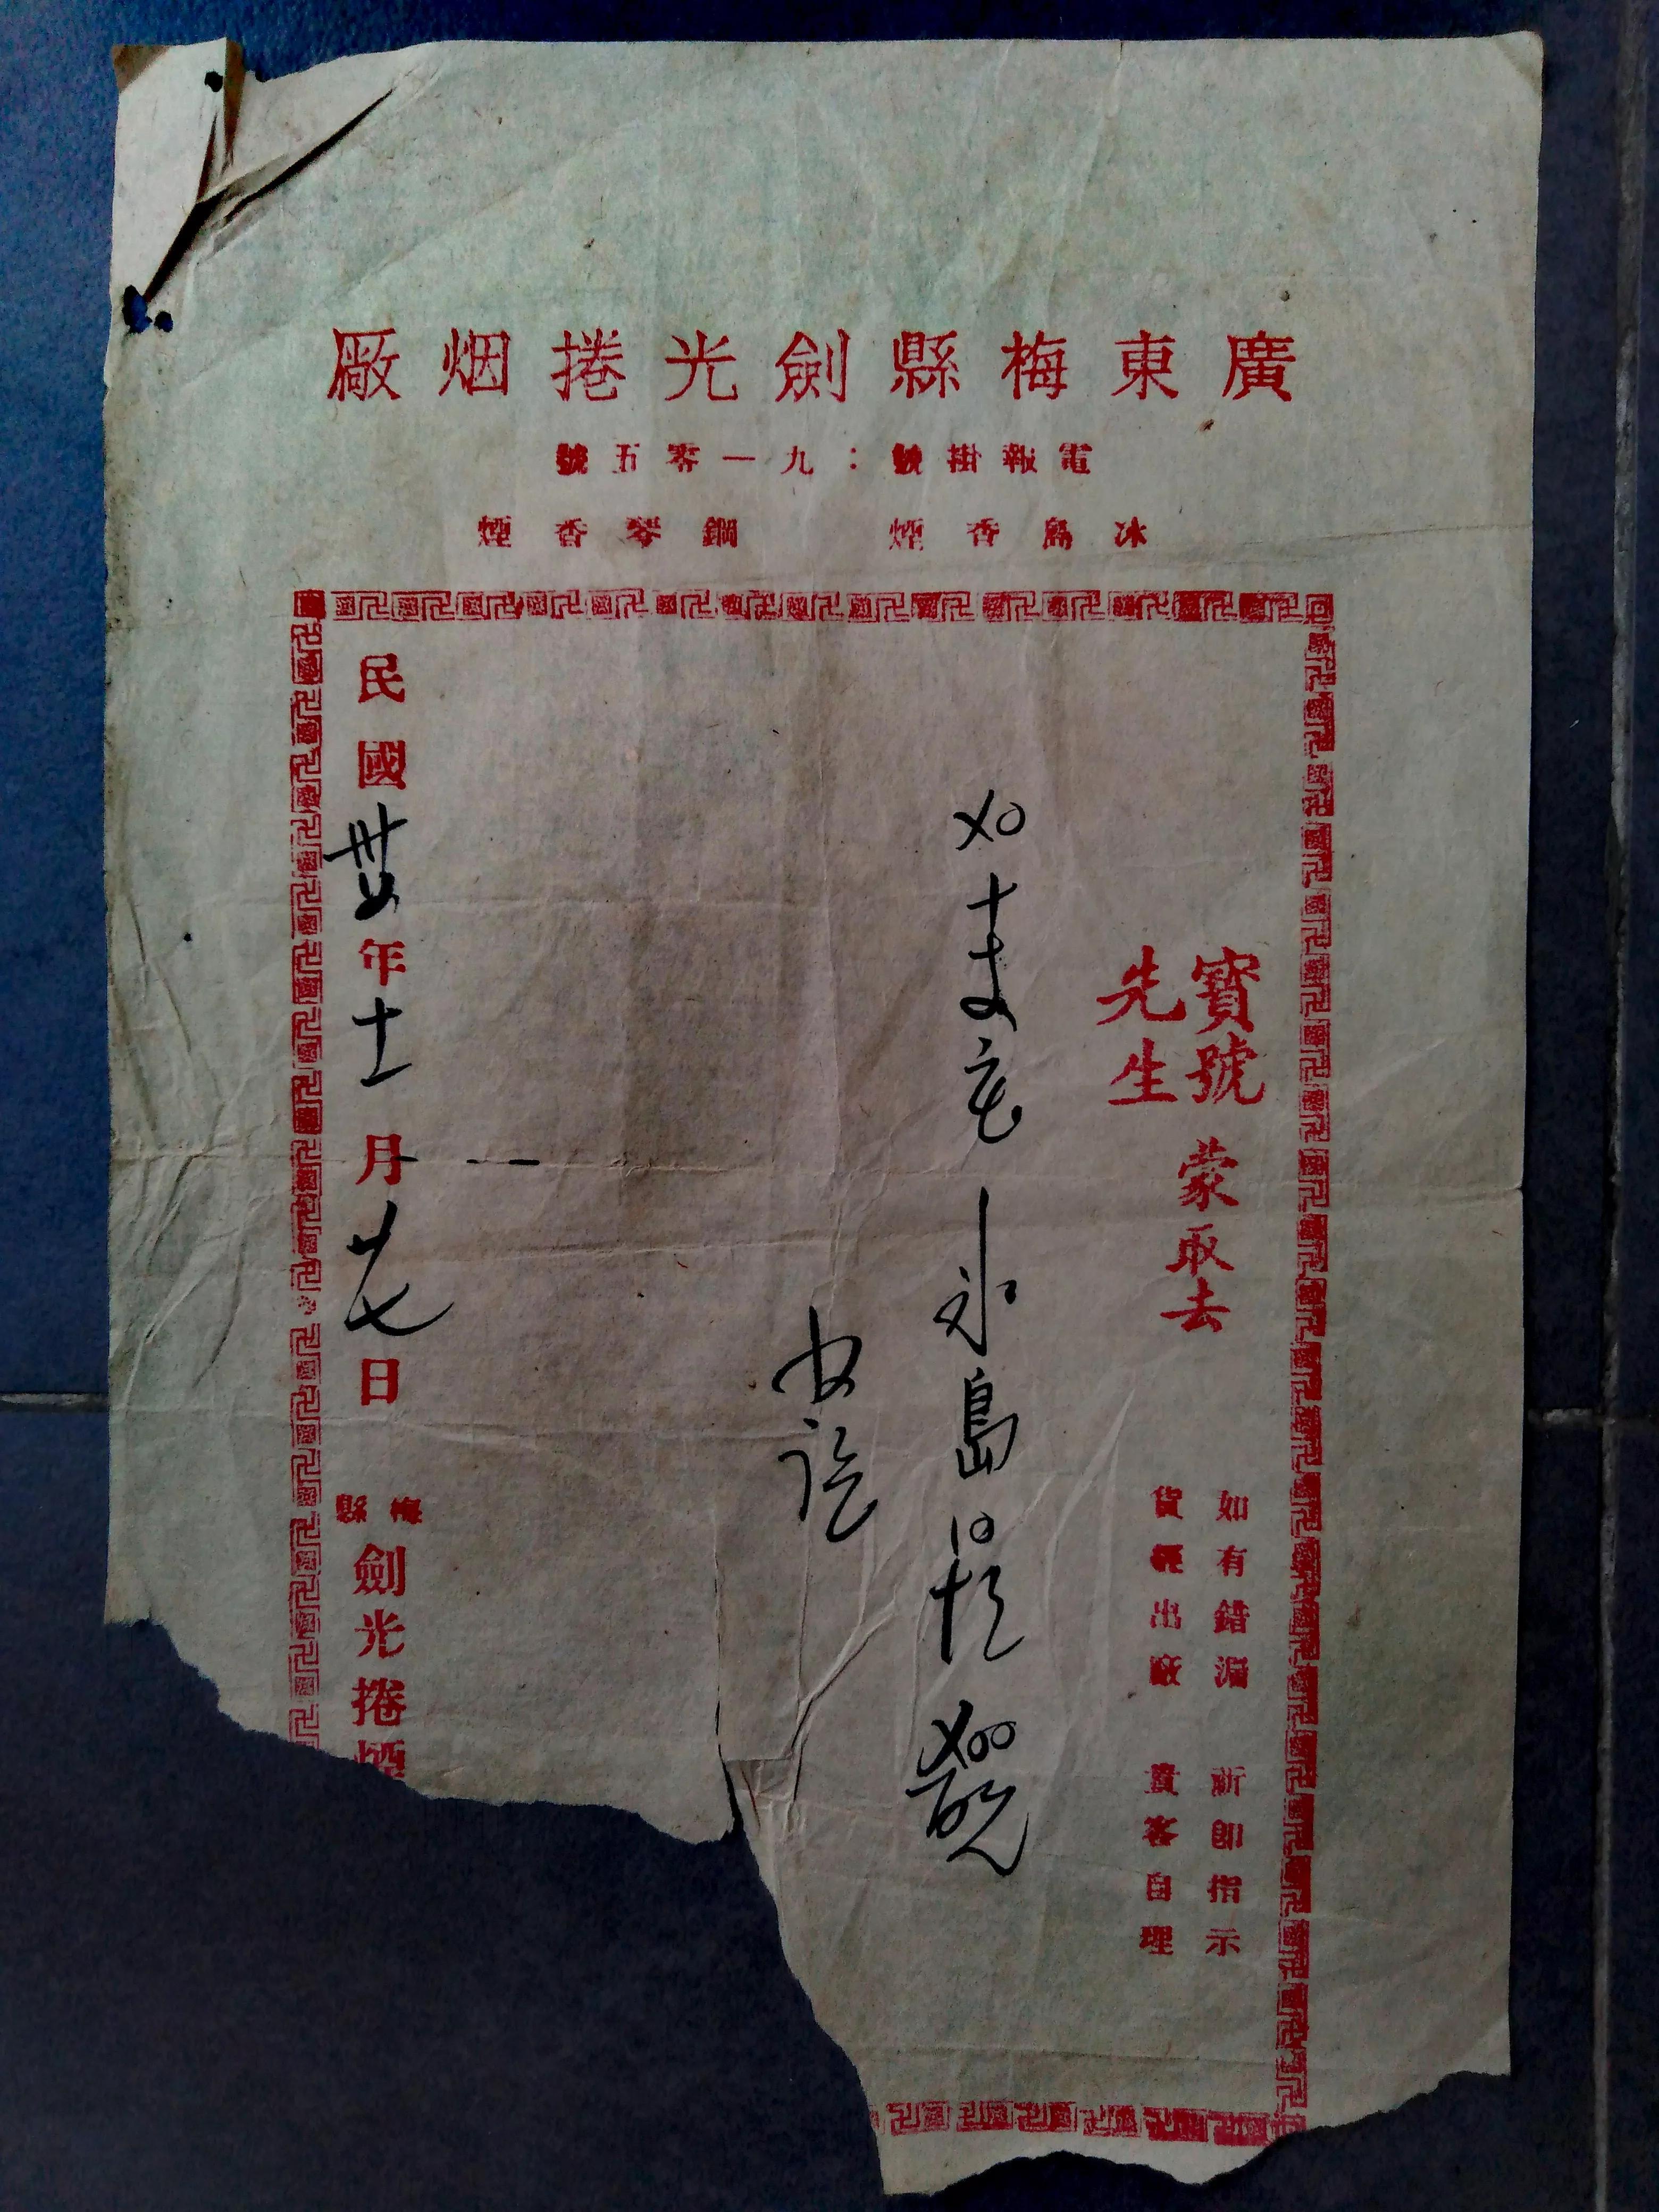 廣東梅縣劍光捲烟廠
電報掛號：九一零五號
冰島香煙　鋼琴香煙
寶號
先生
蒙取去
如有錯漏　祈即指示
貨經出廠　貴客自理
冰島
收訖
民國卅年十一月廿七日
梅縣
劍光捲煙